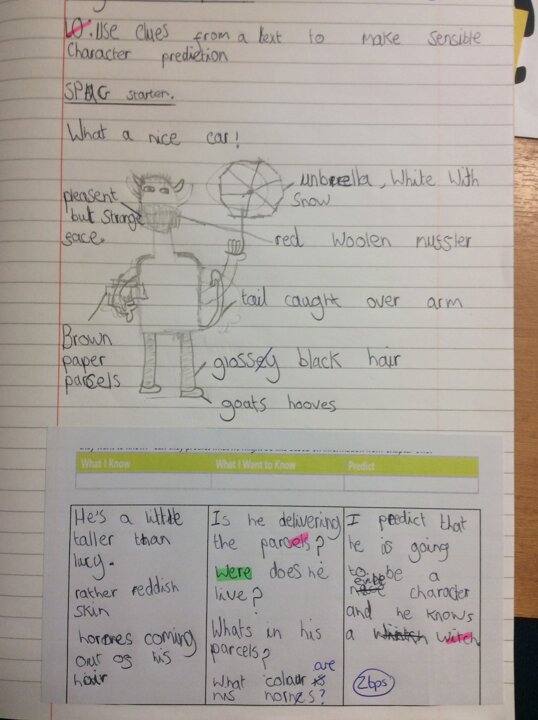 L.O. Use clues from a text to make sensible
Character prediction
SPAG starter.
What a nice car!
unbrella, White With
snow
pleasent
but strange
face.
red woolen muffler
tail caught over arm
Brown
paper
parcels
glossey black hair
goats hooves
What I Know
What I Want to Know
Predict
He's a little
taller than
lucy.
rather reddish
skin
hornes coming
out of his
hair
Is he delivering
the parcels?
Were does he
live?
Whats in his
parcels?
are
What colour is
his hornes?
I predict that
he is going
to be a
character
and he knows
a witch
2bps